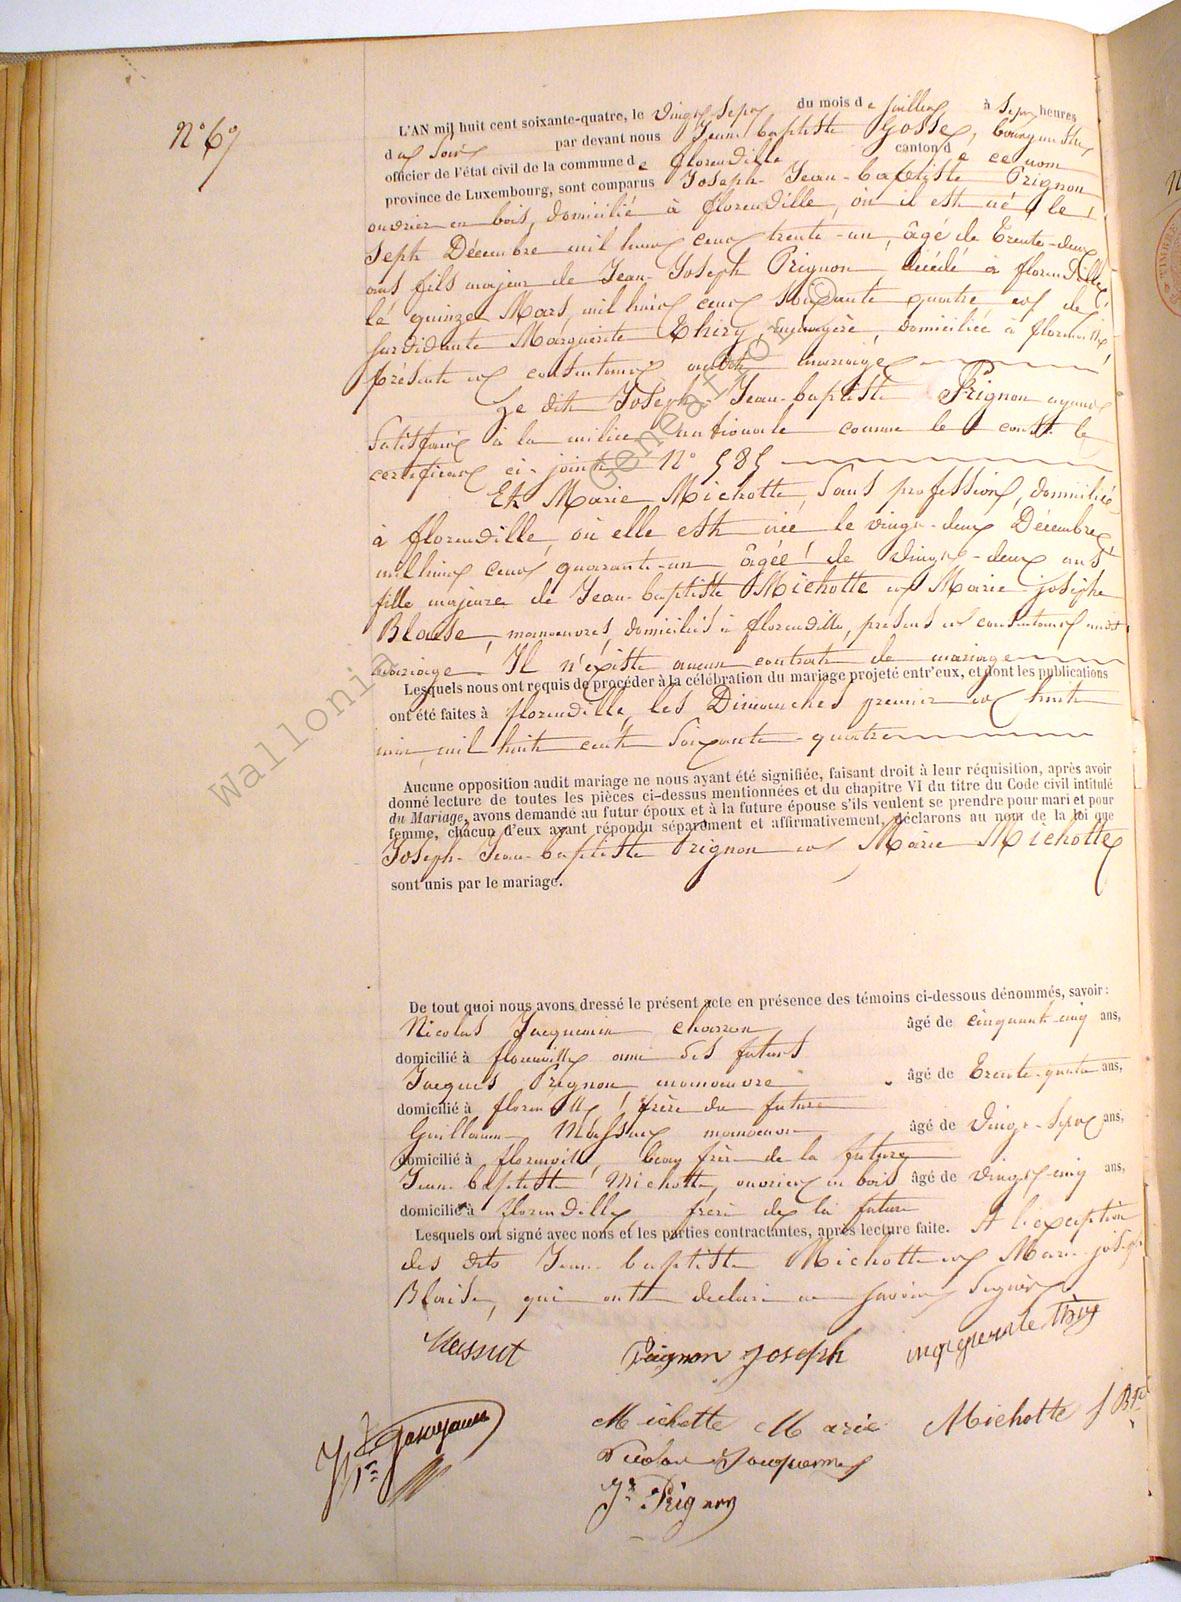 N° 67
L'AN mil huit cent soixante-quatre, le vingt sept du mois de juillet à sept heures
du soir par devant nous Jean baptiste Gosse, bourgmestre
officier de l'état civil de la commune de florenville canton de ce nom
province de Luxembourg, sont comparus Joseph Jean-baptiste Prignon
ouvrier en bois, domicilié à florenville, où il est né, le
Sept Décembre mil huit cent trente-un, âgé de trente-deux
ans fils majeur de Jean-Joseph Prignon, décédé à florenville
le quinze Mars, mil huit cent soixante quatre et de
survivante Marguerite Thiry, ménagère, domiciliée à florenville,
présente et consentant audit mariage
Le dit Joseph-Jean-baptiste Prignon ayant
satisfait à la milice nationale comme le const. le
certificat ci-joint N° 585
Et Marie Michotte, Sans profession, domiciliée
à florenville, où elle est née le vingt-deux Décembre
mil huit cent quarante-un âgée de vingt-deux ans
fille majeure de Jean-baptiste Michotte et Marie-josèphe
Blaise, manoeuvres, domiciliés à florenville, présents et consentant audit
mariage. Il n'existe aucun contrat de mariage
Lesquels nous ont requis de procéder à la célébration du mariage projeté entr'eux, et dont les publications
ont été faites à florenville, les Dimanches premier et huit
mai mil huit cent soixante-quatre
Aucune opposition audit mariage ne nous ayant été signifiée, faisant droit à leur réquisition, après avoir
donné lecture de toutes les pièces ci-dessus mentionnées et du chapitre VI du titre du Code civil intitulé
du Mariage, avons demandé au futur époux et à la future épouse s'ils veulent se prendre pour mari et pour
femme, chacun d'eux ayant répondu séparément et affirmativement, déclarons au nom de la loi que
Joseph-Jean-baptiste Prignon et Marie Michotte
sont unis par le mariage.
De tout quoi nous avons dressé le présent acte en présence des témoins ci-dessous dénommés, savoir:
Nicolas Jacquemin charron, âgé de cinquante-cinq ans,
domicilié à florenville ami des futurs
Jacques Prignon manoeuvre âgé de trente-quatre ans,
domicilié à florenville, frère du futur
Guillaume Massut manoeuvre âgé de vingt-sept ans,
domicilié à florenville, beau frère de la future
Jean baptiste Michotte, ouvrier en bois âgé de vingt-cinq ans,
domicilié à florenville, frère de la future
Lesquels ont signé avec nous et les parties contractantes, après lecture faite. A l'exception
des dits Jean baptiste Michotte et Marie-josèphe
Blaise, qui ont déclaré ne savoir signer
Massut Prignon Joseph marguerite Thiry
Michotte Marie Michotte J Bte
Nicolas Jacquemin
Jq Prignon
Wallonia
GeneaFror ©
TIMBRE